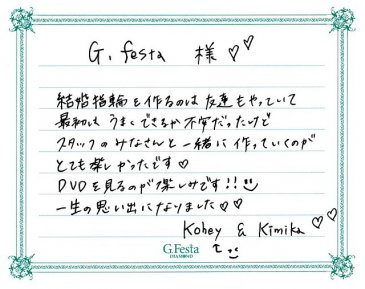 G. festa 様♡♡
結婚指輪を作るのは友達もやっていて
最初は うまくできるか不安だったけど
スタッフのみなさんと一緒に作っていくのが
とても楽しかったです♡
DVDを見るのが楽しみです!!
一生の思い出になりました♡♡
Kohey & Kimika♡♡
より
G.Festa
DIAMOND